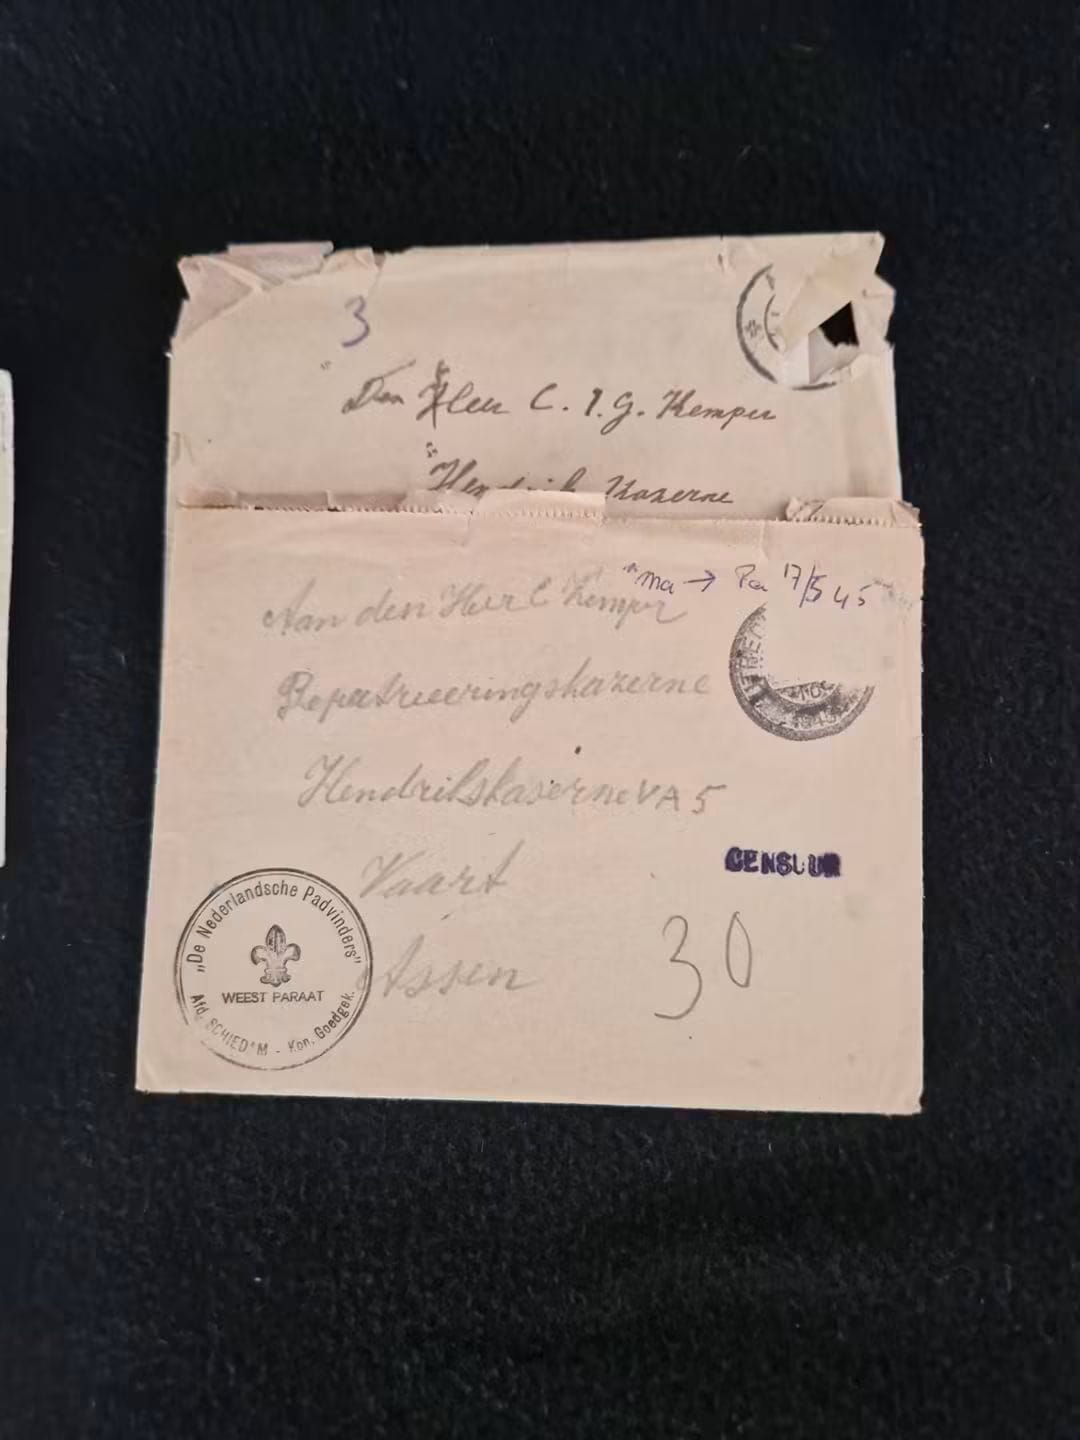 3
Den Heer C. J. G. Kemper
Hendrik Kazerne
Ma → Pa 17/5 45
Aan den Heer C Kemper
Repatrieeringskazerne
Hendrikskazerne VA 5
Vaart
Assen
CENSUUR
30
„De Nederlandsche Padvinders"
WEEST PARAAT
Afd. SCHIED*M - Kon. Goedgek.